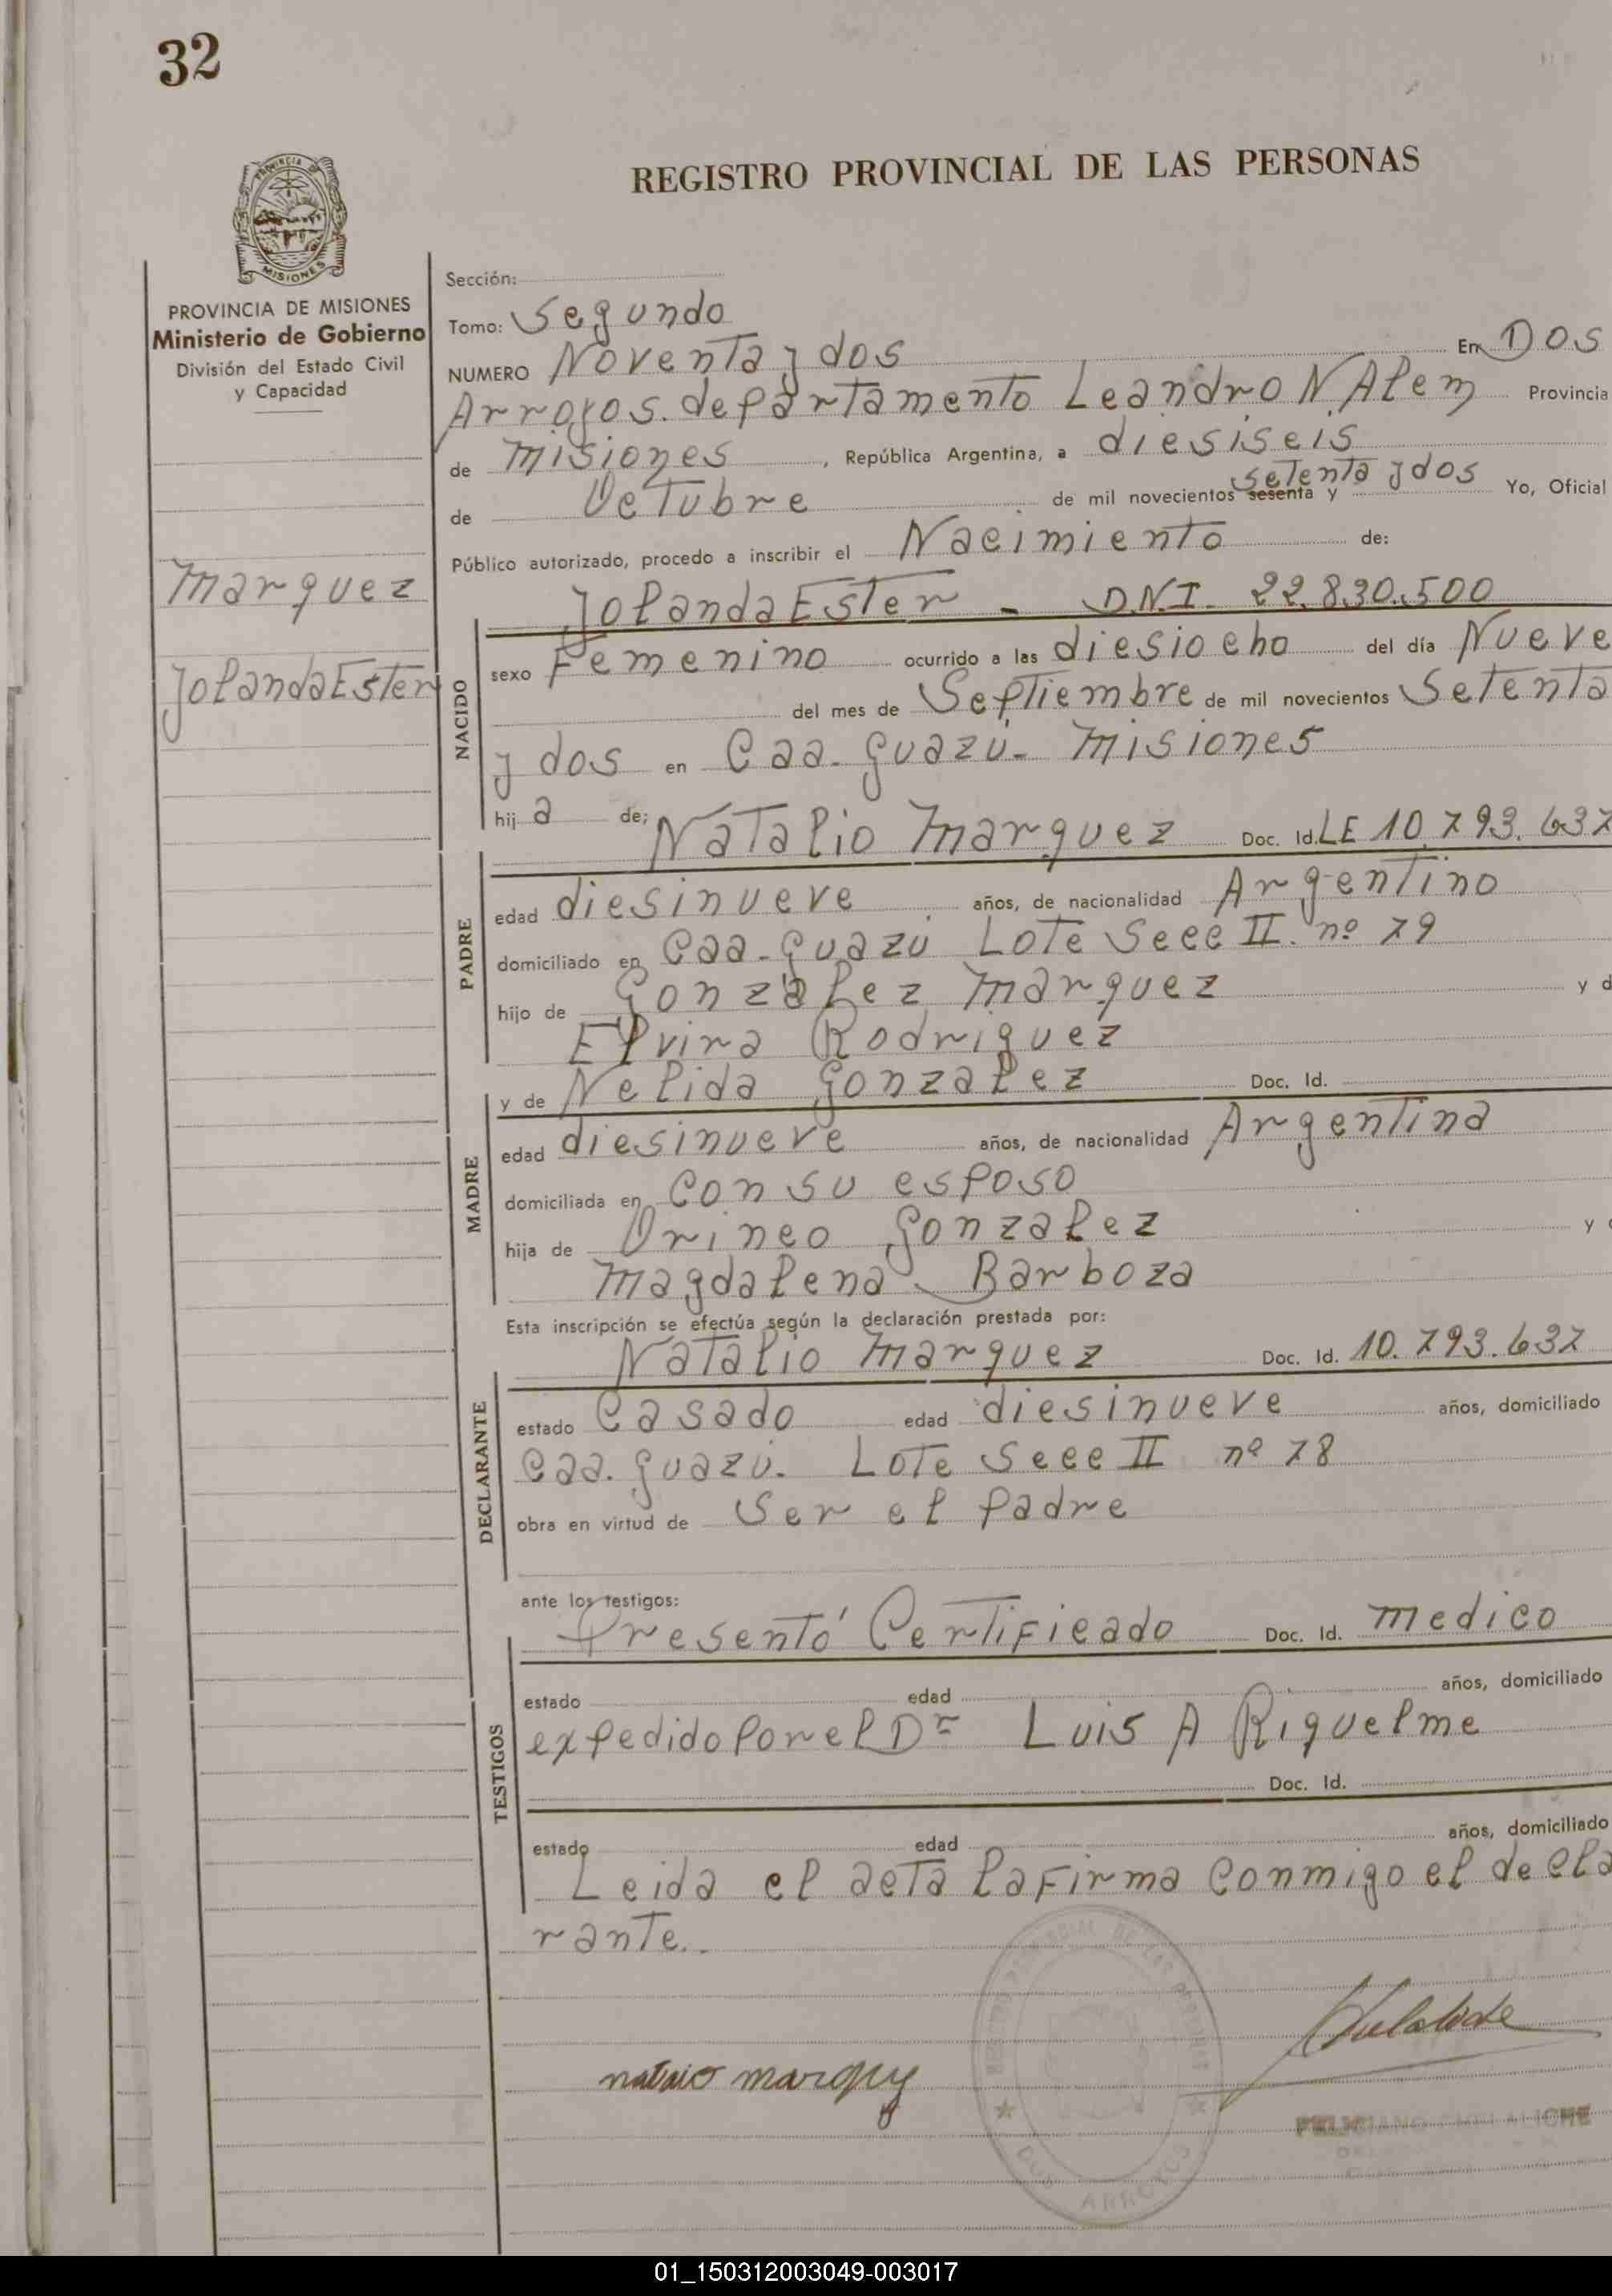 32
REGISTRO PROVINCIAL DE LAS PERSONAS
PROVINCIA DE MISIONES
MISIONES
PROVINCIA DE MISIONES
Ministerio de Gobierno
División del Estado Civil
y Capacidad
Marquez
Jolanda Ester
Sección:
Tomo: Segundo
NUMERO Noventa y dos En Dos
Arroyos. departamento Leandro N. Alem Provincia
de Misiones, República Argentina, a diesiseis
de Octubre de mil novecientos sesenta y setenta y dos Yo, Oficial
Público autorizado, procedo a inscribir el Nacimiento de:
Jolanda Ester - D.N.I. 22.830.500
NACIDO
sexo Femenino ocurrido a las diesiocho del día Nueve
del mes de Septiembre de mil novecientos Setenta
y dos en Caa-Guazú- Misiones
hija de; Natalio Marquez Doc. Id. LE 10.793.637
PADRE
edad diesinueve años, de nacionalidad Argentino
domiciliado en Caa-Guazú Lote Secc II. nº 79
hijo de Gonzalez Marquez y d
Elvira Rodriguez
y de Nelida Gonzalez Doc. Id.
MADRE
edad diesinueve años, de nacionalidad Argentina
domiciliada en Con su esposo
hija de Orineo Gonzalez y
Magdalena Barboza
Esta inscripción se efectúa según la declaración prestada por:
Natalio Marquez Doc. Id. 10.793.637
DECLARANTE
estado Casado edad diesinueve años, domiciliado
Caa. Guazú. Lote Secc II nº 78
obra en virtud de Ser el padre
ante los testigos:
Presentó Certificado Doc. Id. medico
TESTIGOS
estado edad años, domiciliado
expedido por el Dr Luis A Riquelme
Doc. Id.
estado edad años, domiciliado
Leida el acta la firma conmigo el decla
rante.
DOS ARROYOS
01_150312003049-003017